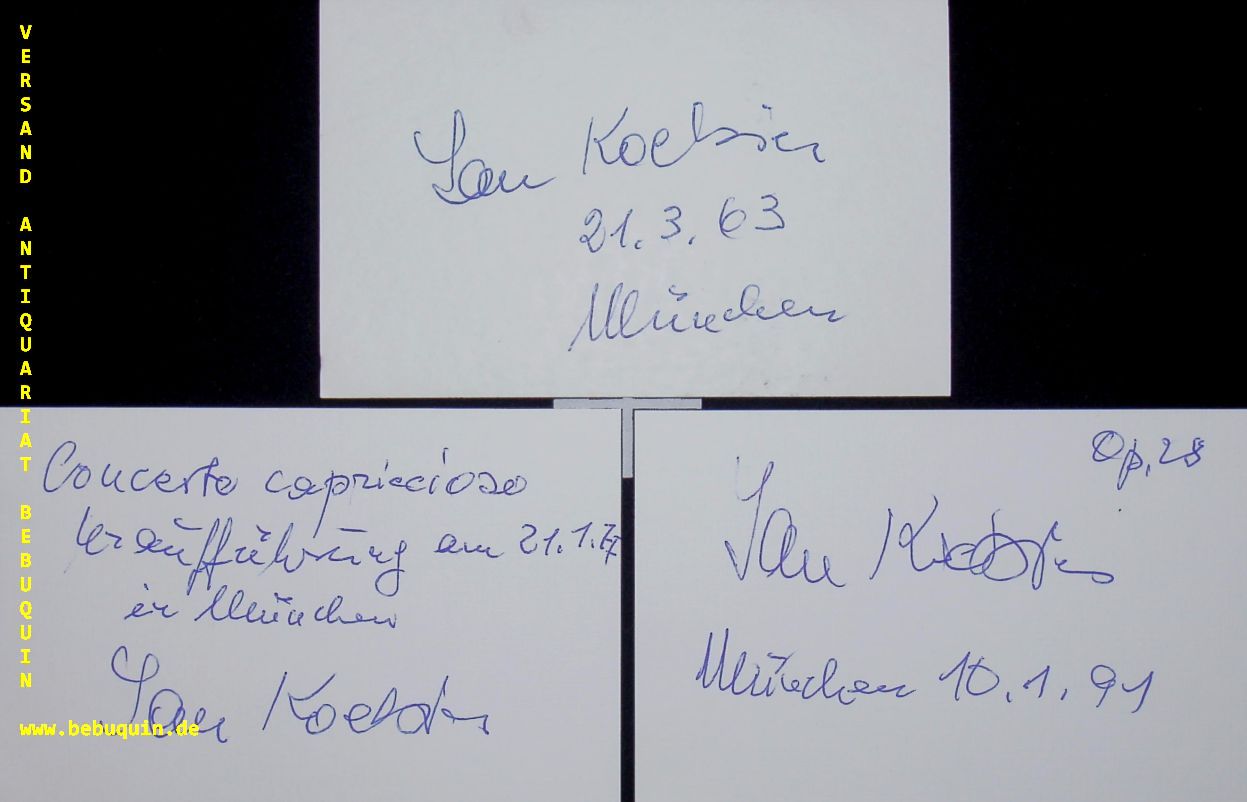 VERSAND ANTIQUARIAT BEBUQUIN
Jan Koetsier
21.3.63
München
Concerto capriccioso
Uraufführung am 21.1.77
in München
Jan Koetsier
Op. 28
Jan Koetsier
München 10.1.91
www.bebuquin.de